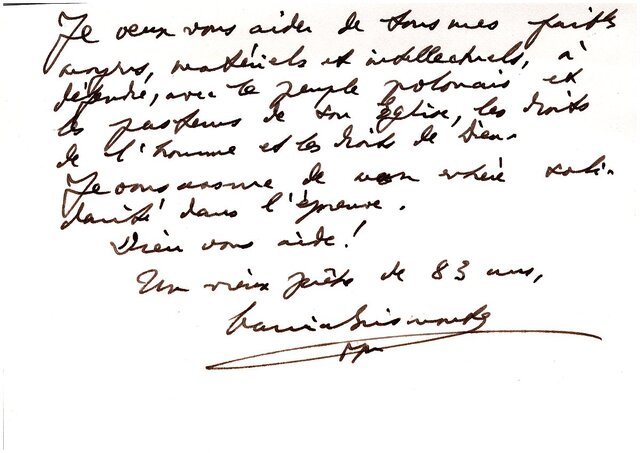 Je veux vous aider de tous mes faibles
moyens, matériels et intellectuels, à
défendre, avec le peuple polonais et
les pasteurs de son Église, les droits
de l'homme et les droits de Dieu.
Je vous assure de mon entière soli-
darité dans l'épreuve.
Dieu vous aide!
Un vieux prêtre de 83 ans,